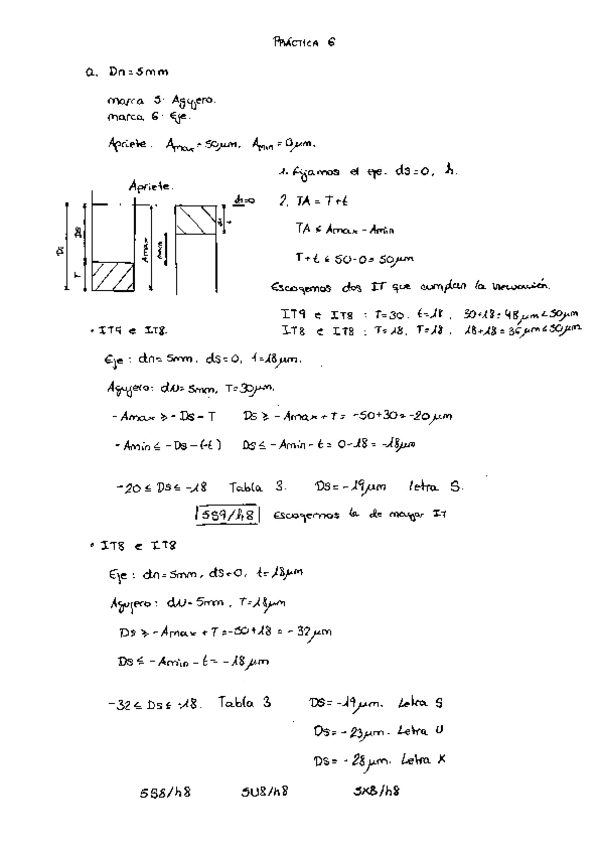 PRÁCTICA 6
a. Dn = 5mm
marca 5: Agujero.
marca 6: Eje.
Apriete. Amax = 50μm. Amin = 0μm.
1. Fijamos el eje. ds=0, h.
Apriete.
ds=0
Ds
DS
T
Amax
Amin
2. TA = T+t
TA ≤ Amax - Amin
T+t ≤ 50-0 = 50μm
Escogemos dos IT que cumplan la inecuación.
IT9 e IT8 : T=30. t=18, 30+18=48μm<50μm
IT8 e IT8 : T=18, T=18. 18+18=36μm≤50μm
• IT9 e IT8.
Eje : dn=5mm, ds=0, t=18μm.
Agujero: dN=5mm, T=30μm.
- Amax ≥ - Ds - T Ds ≥ - Amax + T = -50+30=-20μm
- Amin ≤ - Ds - (-t) Ds ≤ - Amin - t = 0-18 = -18μm
-20 ≤ Ds ≤ -18 Tabla 3. Ds = -19μm letra S.
5S9/h8 Escogemos la de mayor IT
• IT8 e IT8
Eje : dn=5mm, ds=0, t=18μm
Agujero: dN=5mm, T=18μm
Ds ≥ - Amax + T = -50+18 = -32μm
Ds ≤ - Amin - t = -18μm
-32 ≤ Ds ≤ -18. Tabla 3 Ds = -19μm. Letra S
Ds = -23μm. Letra U
Ds = -28μm. Letra X
5S8/h8 5U8/h8 5X8/h8